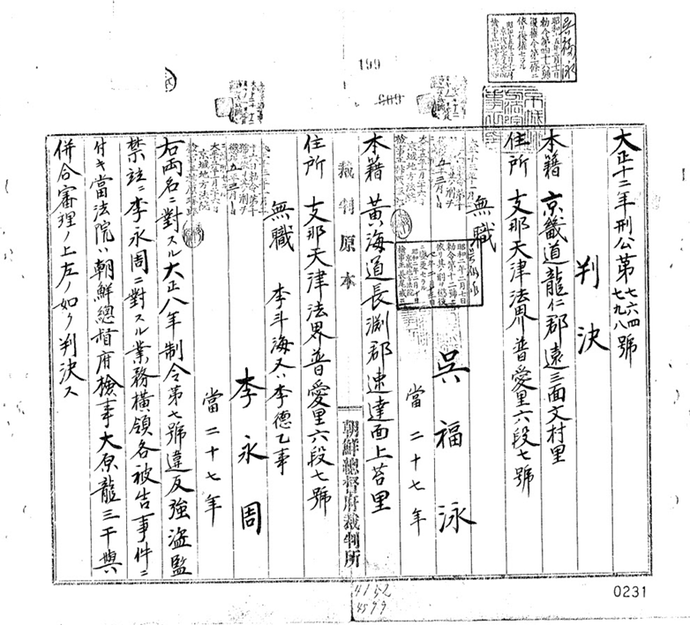 大正十二年刑公第七六四 七九八號
判決
本籍 京畿道龍仁郡遠三面文村里
住所 支那天津法界普愛里六段七號
無職
吳福泳
當二十七年
本籍 黃海道長淵郡速達面上苔里
裁判原本
朝鮮總督府裁判所
住所 支那天津法界普愛里六段七號
無職 李斗海又ハ李德乙事
李永周
當二十七年
右兩名ニ對スル大正八年制令第七號違反強盜監
禁竝ニ李永周ニ對スル業務橫領各被告事件ニ
付キ當法院ハ朝鮮總督府檢事大原龍三干與
併合審理ノ上左ノ如ク判決ス
吳福泳
199
0231